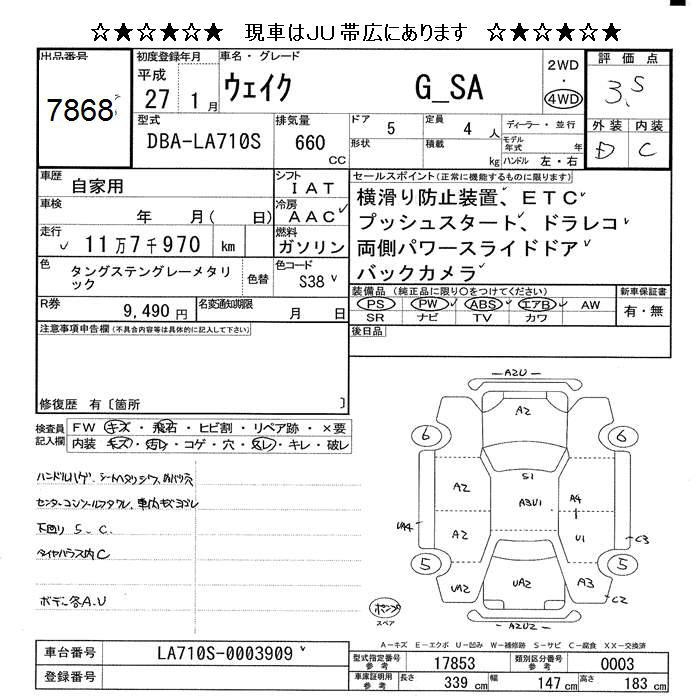 ☆★☆★☆★ 現車はJU帯広にあります ☆★☆★☆★
出品番号
7868
初度登録年月
平成
27 1月
車名・グレード
ウェイク G_SA
2WD
・
4WD
評価点
3.5
外装 内装
D C
型式
DBA-LA710S
排気量
660
CC
ドア 5
定員 4 人
形状
積載 kg
ディーラー・並行
モデル年式 年
ハンドル 左・右
車歴
自家用
シフト
IAT
車検
年 月( 日)
冷房
AAC
走行
11万7千970 km
燃料
ガソリン
色
タングステングレーメタリック
色替
色コード
S38
R券
9,490円
名変通知期限
月 日
セールスポイント(正常に機能するものに限ります)
横滑り防止装置、ETC
プッシュスタート、ドラレコ
両側パワースライドドア
バックカメラ
装備品(純正品に限り○をつけてください)
PS PW ABS エアB AW
SR ナビ TV カワ
新車保証書
有・無
後日品
注意事項申告欄(不具合内容等は具体的に記入して下さい)
修復歴 有〔箇所 〕
検査員記入欄
FW キズ・飛石・ヒビ割・リペア跡・×要
内装 キズ・汚レ・コゲ・穴・スレ・キレ・破レ
ハンドルハゲ、シートヘタリシワ、
センターコンソールフタワレ、車内キズヨゴレ
下回り S、C
タイヤハウス内C
ボデー各A.U
A2U
A2
6 6
S1
A2 A3U1 A4
1
UA4 A2 U1 C3
5 5
UA2 UA2 A3
C2
A2U2
ポンプ
スペア
A-キズ E-エクボ U-凹み W-補修跡 S-サビ C-腐食 XX-交換済
車台番号
LA710S-0003909
登録番号
型式指定番号参考
17853
類別区分番号参考
0003
車庫証明用参考
長さ 339 cm
幅 147 cm
高さ 183 cm